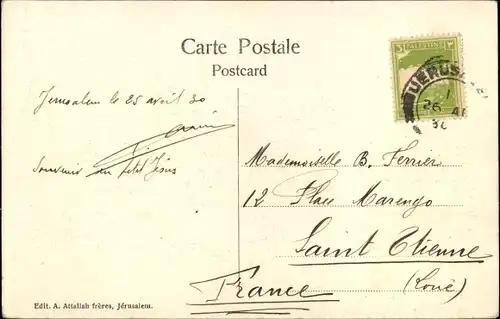 Carte Postale
Postcard
PALESTINE
JERUSAL
26 AP
30
Jerusalem le 25 avril 30
Souvenir du petit Jésus
Mademoiselle B. Ferrier
12 Place Marengo
Saint Etienne
(Loire)
France
Edit. A. Attallah frères, Jérusalem.